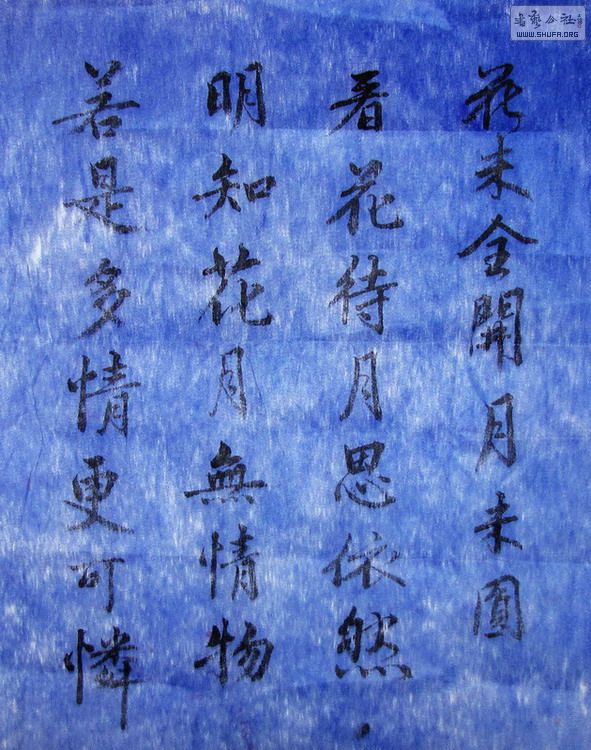 花未全開月未圓
看花待月思依然
明知花月無情物
若是多情更可憐
書藝公社
WWW.SHUFA.ORG